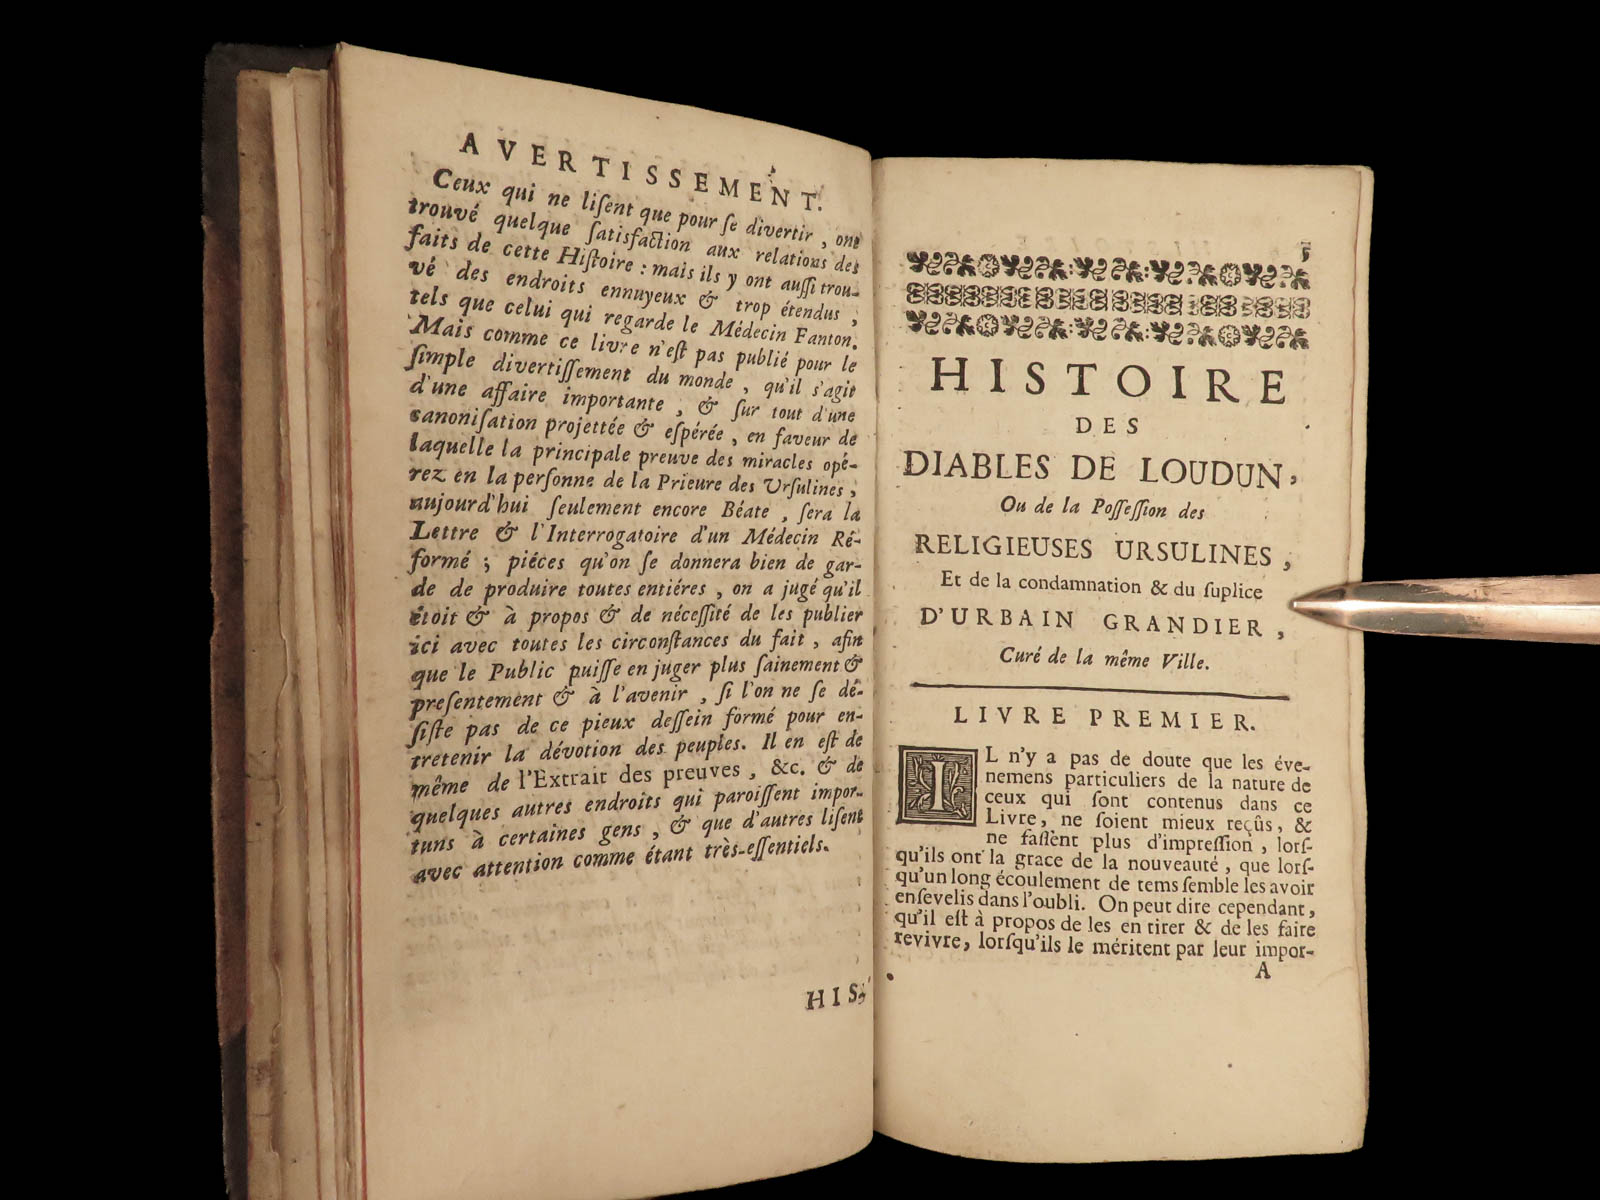 AVERTISSEMENT.
Ceux qui ne liſent que pour ſe divertir, ont
trouvé quelque ſatisfaction aux relations des
faits de cette Hiſtoire : mais ils y ont auſſi trou-
vé des endroits ennuyeux & trop étendus,
tels que celui qui regarde le Médecin Fanton.
Mais comme ce livre n'eſt pas publié pour le
ſimple divertiſſement du monde, qu'il s'agit
d'une affaire importante, & ſur tout d'une
canoniſation projettée & eſpérée, en faveur de
laquelle la principale preuve des miracles opé-
rez en la perſonne de la Prieure des Urſulines,
aujourd'hui ſeulement encore Béate, ſera la
Lettre & l'Interrogatoire d'un Médecin Ré-
formé ; piéces qu'on ſe donnera bien de gar-
de de produire toutes entiéres, on a jugé qu'il
étoit & à propos & de néceſſité de les publier
ici avec toutes les circonſtances du fait, afin
que le Public puiſſe en juger plus ſainement &
preſentement & à l'avenir, ſi l'on ne ſe dé-
ſiſte pas de ce pieux deſſein formé pour en-
tretenir la dévotion des peuples. Il en eſt de
même de l'Extrait des preuves, &c. & de
quelques autres endroits qui paroiſſent impor-
tuns à certaines gens, & que d'autres liſent
avec attention comme étant très-eſſentiels.
HIS-
HISTOIRE
DES
DIABLES DE LOUDUN,
Ou de la Poſſeſſion des
RELIGIEUSES URSULINES,
Et de la condamnation & du ſuplice
D'URBAIN GRANDIER,
Curé de la même Ville.
LIVRE PREMIER.
IL n'y a pas de doute que les éve-
nemens particuliers de la nature de
ceux qui ſont contenus dans ce
Livre, ne ſoient mieux reçûs, &
ne faſſent plus d'impreſſion, lorſ-
qu'ils ont la grace de la nouveauté, que lorſ-
qu'un long écoulement de tems ſemble les avoir
enſevelis dans l'oubli. On peut dire cependant,
qu'il eſt à propos de les en tirer & de les faire
revivre, lorſqu'ils le méritent par leur impor-
A